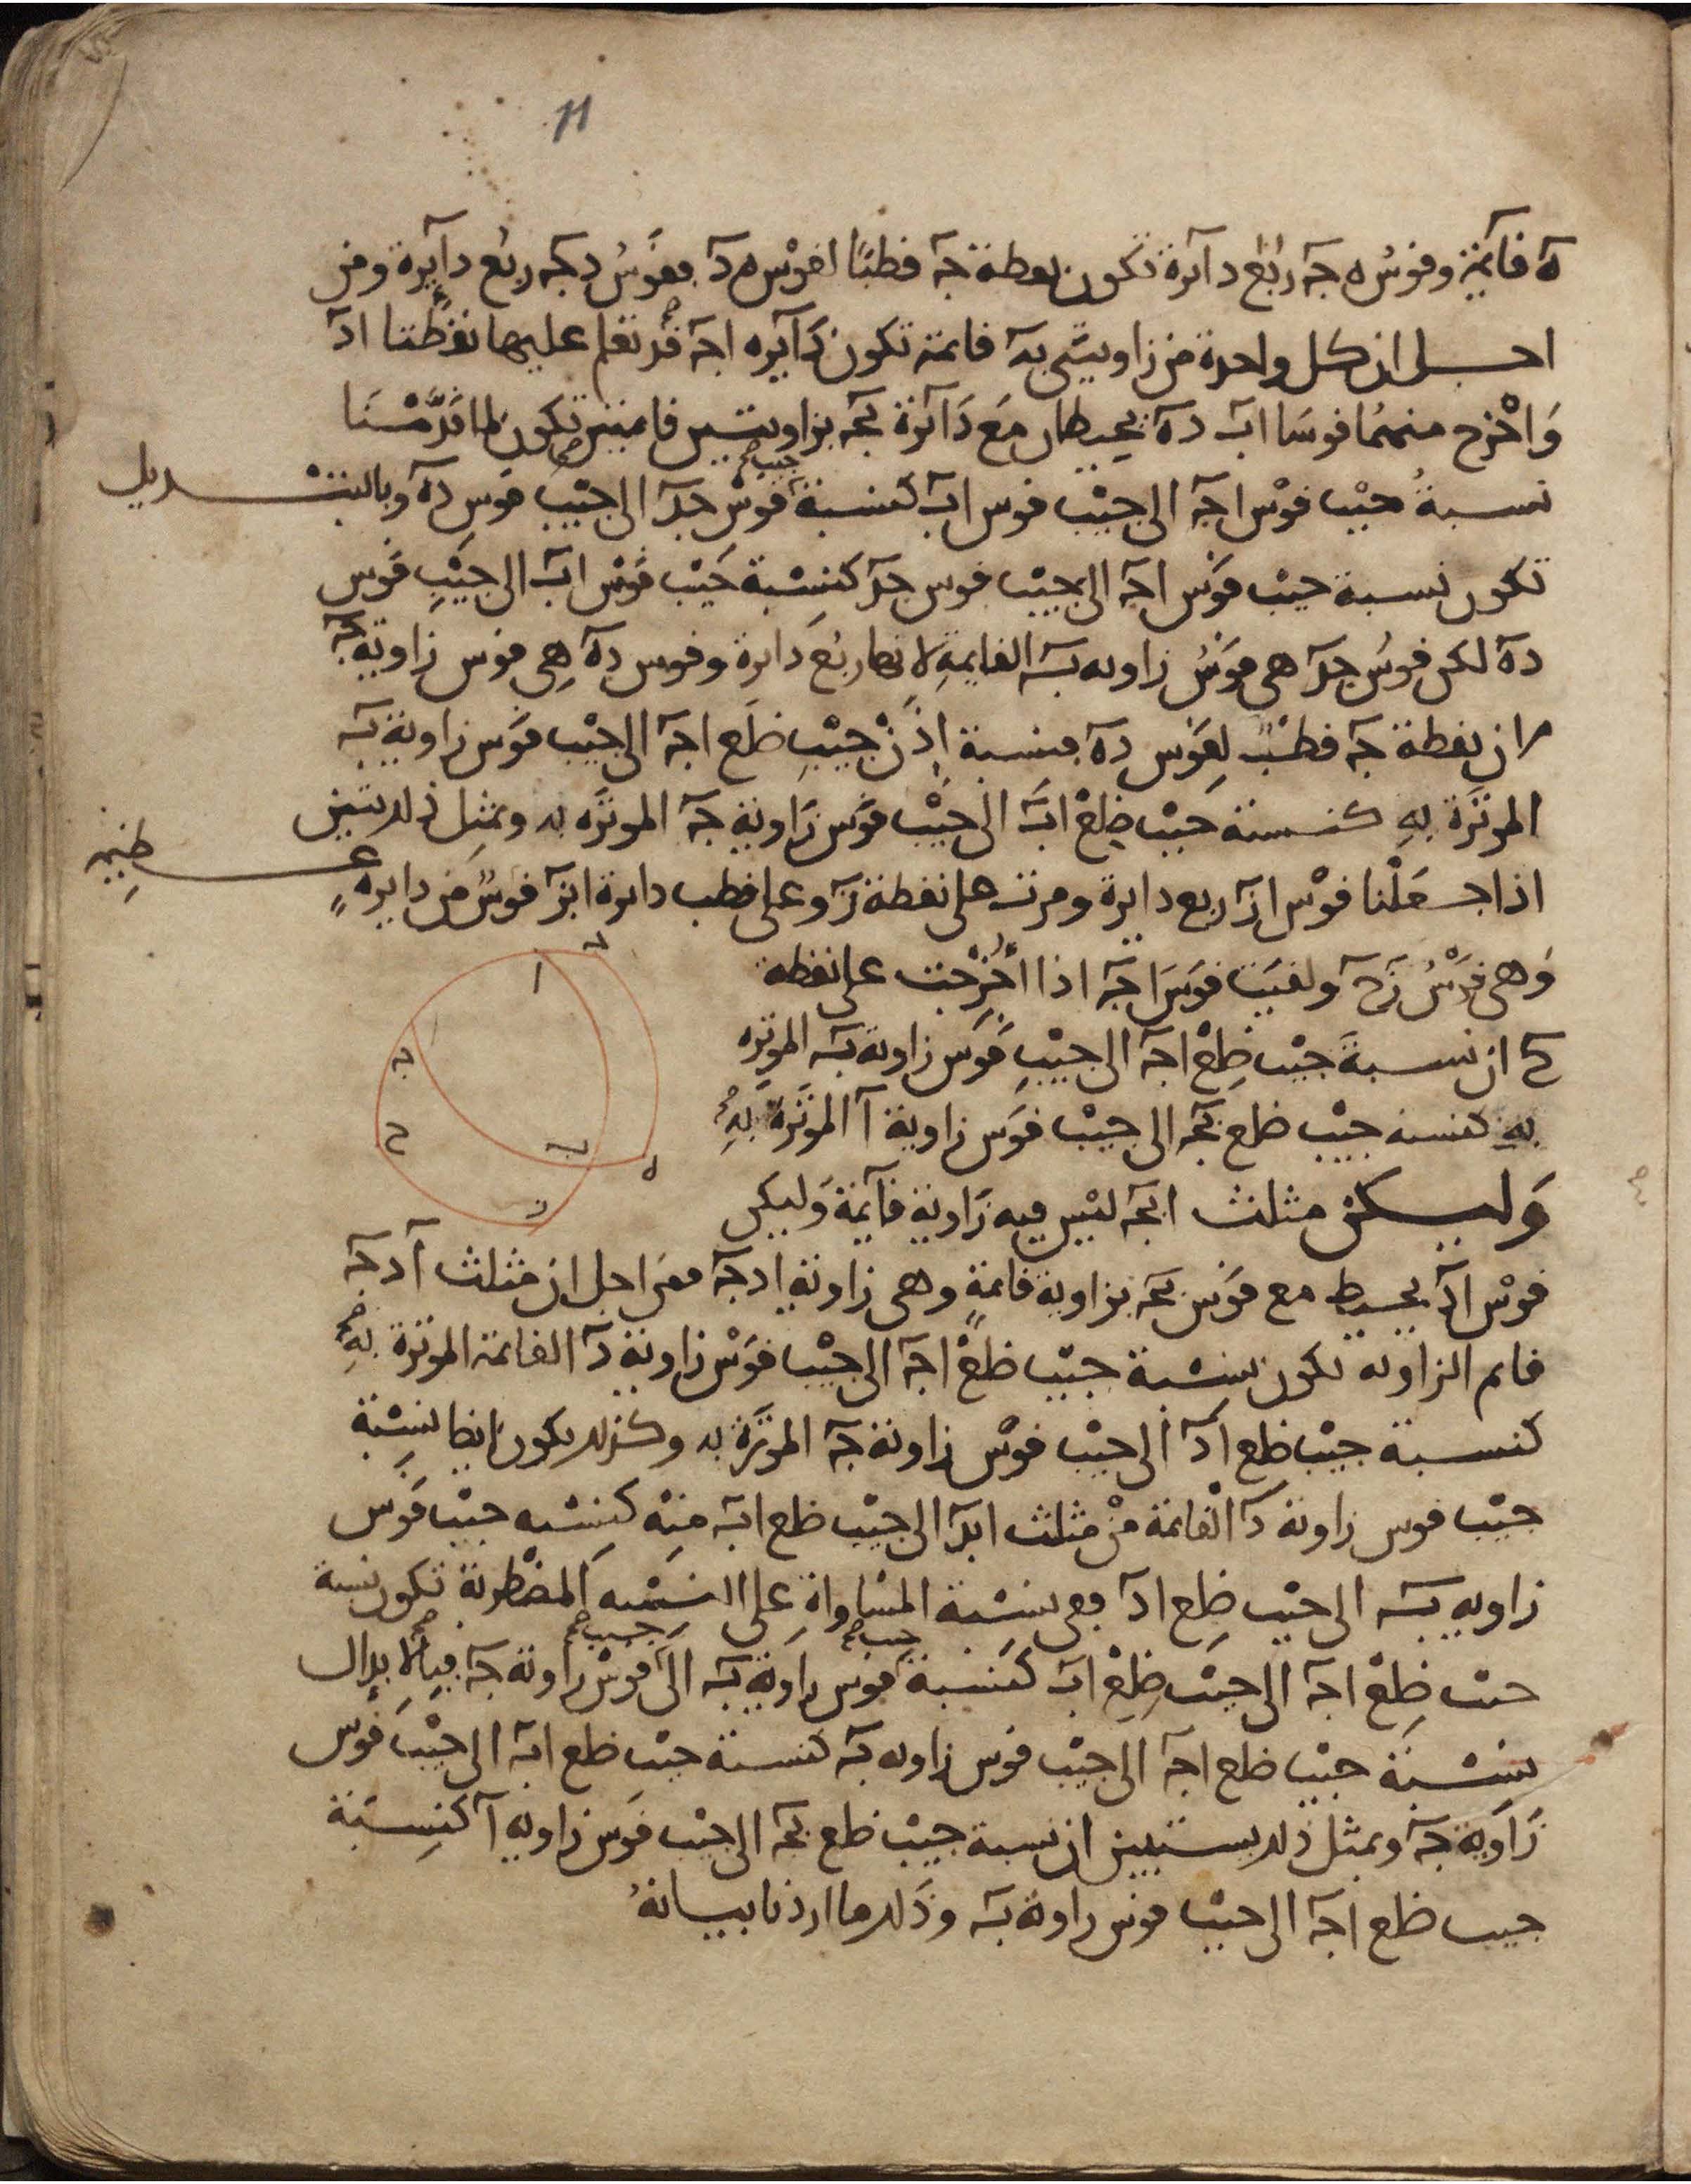 11
هٓ قائمة وقوس ه جٓ ربع دائرة تكون نقطة جٓ قطبًا لقوس ه دٓ فقوس د جٓ ربع دائرة ومن
اجل ان كل واحدة من زاويتي بدٓ قائمة تكون دائرة اجٓ قد تعلم عليها نقطتا ادٓ
وَاخرج منهما قوسا ابٓ دهٓ يحيطان مع دَائرة بجٓ بزاويتين قائمتين تكون لما قدَّمْنَا
نسبةُ جيب قوس اجٓ الى جيب قوس ابٓ كنسبة جيب قوس جدٓ الى جيب قوس دهٓ وبالتبديل
تكون نسبة جيب قوس اجٓ الى جيب قوس جدٓ كنسبة جيب قوس ابٓ الى جيب قوس
دهٓ لكن قوس جدٓ هي قوس زاويه بٓ القايمة لانها ربع دَايرة وقوس دهٓ هي قوس زاوية جٓ
من ان نقطة جٓ قطب لقوس دهٓ فنسبة اذن جيب ضلع اجٓ الى جيب قوس زاوية بٓ
الموترة به كنسبة جيب ضلع ابٓ الى جيب قوس زاوية جٓ الموتره به وبمثل ذلك تبين
اذا جعلنا قوس ازٓ ربع دايرة ومرت على نقطة زٓ وعلى قطب دائرة ابزٓ قوس من دايرة عظيمة
وهي قوس زحٓ ولقيت قوس اجٓ اذا اخرجت على نقطة
حٓ ان نسبة جيب ضلع اجٓ الى جيب قوس زاوية بٓ الموتره
به كنسبة جيب ضلع بجٓ الى جيب قوس زاوية آ الموترة به
وَليكن مثلث ابجٓ ليس فيه زاوية قائمة وَليكن
قوس ادٓ يحيط مع قوس بجٓ بزاوية قائمة وهي زاوية ادجٓ فمن اجل ان مثلث آدجٓ
قايم الزاويه تكون نسبة جيب ضلع اجٓ الى جيب قوس زاوية دٓ القائمة الموترة به
كنسبة جيب ضلع ادٓ الى جيب قوس زاوية جٓ الموترة به وكذلك يكون ايضا نسبة
جيب قوس زاوية دٓ القائمة من مثلث ابدٓ الى جيب ضلع ابٓ منه كنسبه جيب قوس
زاويه بٓ الى جيب ضلع ادٓ ففي نسبة المساواة على النسبه المضطربة تكون نسبة
جيب ضلع اجٓ الى جيب ضلع ابٓ كنسبة جيب قوس زاوية بٓ الى جيب قوس زاوية جٓ فبالابدال
نسبة جيب ضلع اجٓ الى جيب قوس زاويه بٓ كنسبة جيب ضلع ابٓ الى جيب قوس
زاوية جٓ وبمثل ذلك يستبين ان نسبة جيب ضلع بجٓ الى جيب قوس زاويه آ كنسبة
جيب ضلع اجٓ الى جيب قوس زاوية بٓ وذلك ما اردنا بيانهُ